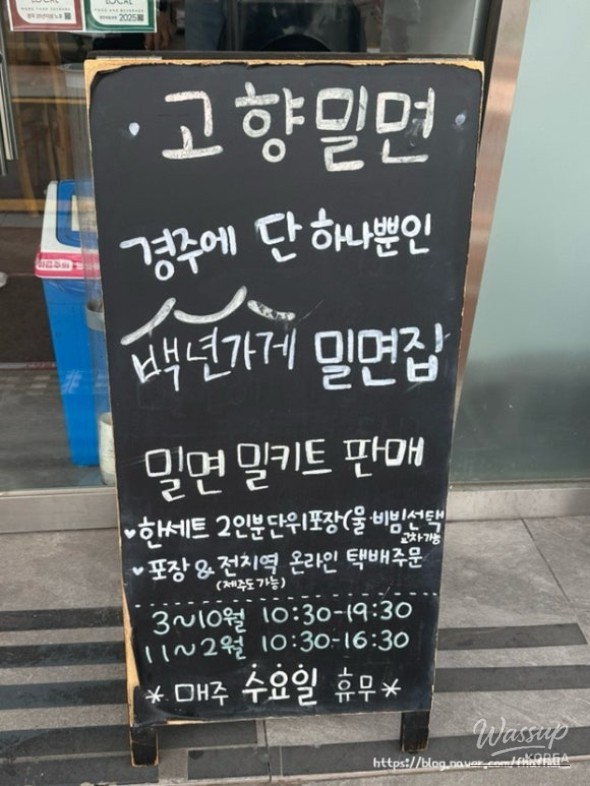 LOCAL
LOCAL
2025
고향밀면
경주에 단 하나뿐인
백년가게 밀면집
밀면 밀키트 판매
♥한세트 2인분단위포장(물·비빔선택
교차가능
♥포장 & 전지역 온라인 택배주문
(제주도가능)
3~10월 10:30-19:30
11~2월 10:30-16:30
* 매주 수요일 휴무 *
Wassup
KOREA
https://blog.naver.com/